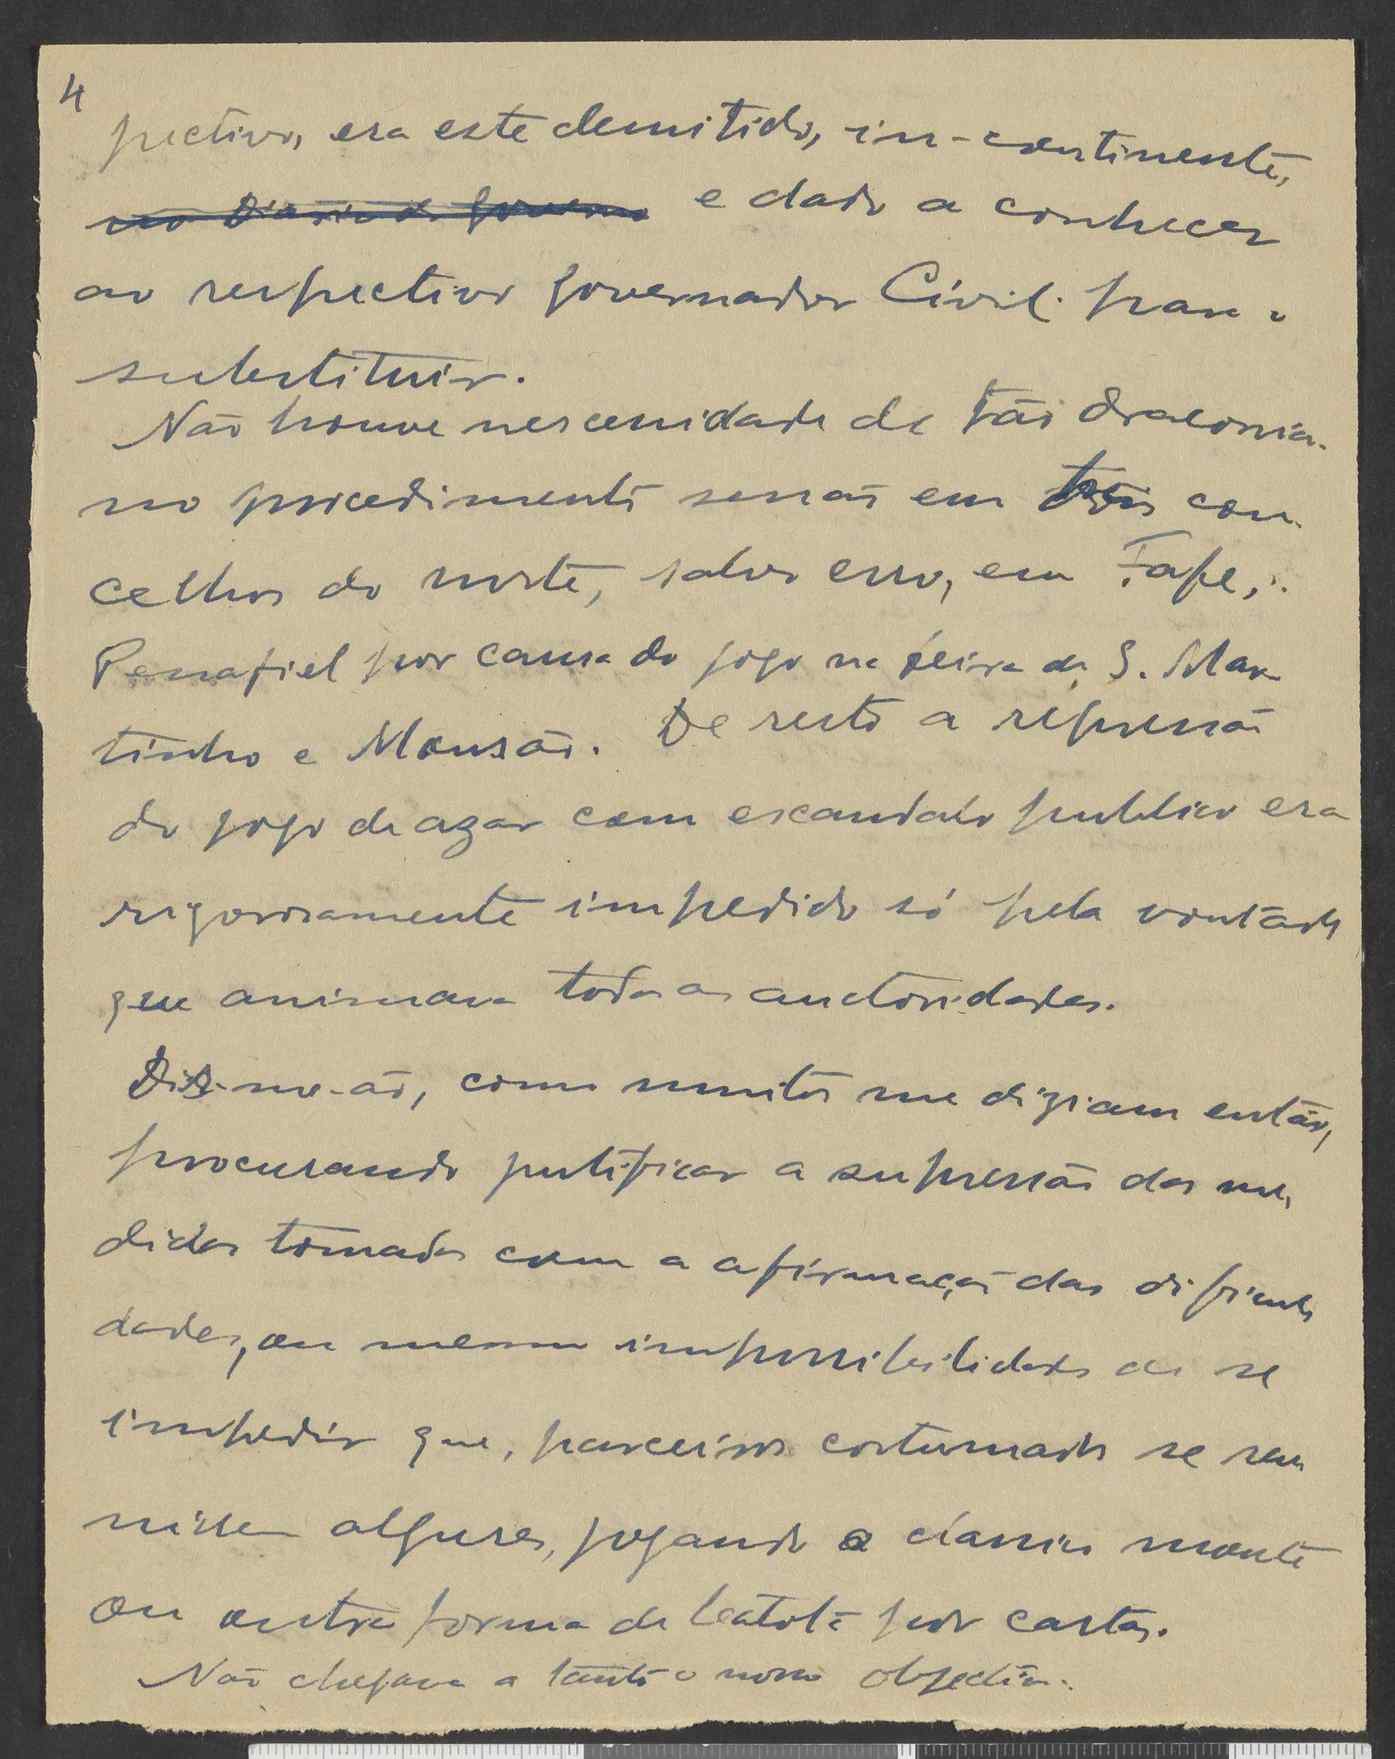 4
pectivo, era este demitido, in-continente,
no Diario do Governo e dado a conhecer
ao respectivo governador Civil para o
substituir.
Não houve nescenidade de tão draconia-
no procedimento senão em tres con-
celhos do norte, salvo erro, em Fafe,
Penafiel por causa do jogo na feira de S. Mar-
tinho e Monsão. De resto a repressão
do jogo de azar com escandalo publico era
rigorosamente impedido só pela vontade
que animava todas as auctoridades.
Dir-me-ão, como muitos me diziam então,
procurando justificar a supressão das me-
didas tomadas com a afirmação das dificul-
dades, ou mesmo impossibilidade de se
impedir que, parceiros costumados se reu-
nissem algures, jogando o classico monte
ou outra forma de batota por cartas.
Não chegava a tanto o nosso objectivo.